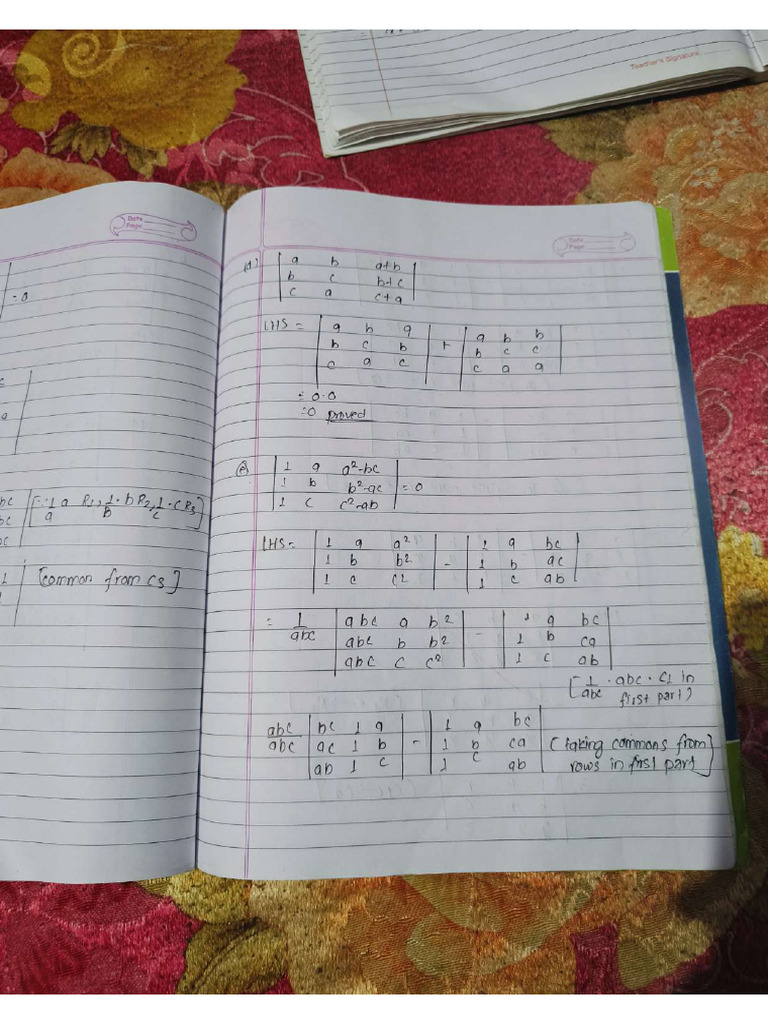 Teacher's Signature
Date
Page
= 0
a
bc
bc
bc
[∵ 1/a · a R1, 1/b · b R2, 1/c · c R3]
[common from c3]
Date
Page
(d) | a b a+b |
| b c b+c |
| c a c+a |
LHS = | a b a | + | a b b |
| b c b | | b c c |
| c a c | | c a a |
= 0·0
= 0 proved
(e) | 1 a a²-bc |
| 1 b b²-ac | = 0
| 1 c c²-ab |
LHS = | 1 a a² | - | 1 a bc |
| 1 b b² | | 1 b ac |
| 1 c c² | | 1 c ab |
= 1/abc | abc a b² | - | 1 a bc |
| abc b b² | | 1 b ca |
| abc c c² | | 1 c ab |
[1/abc · abc · c1 in
first part)
abc/abc | bc 1 a | - | 1 a bc |
| ac 1 b | | 1 b ca | [taking commons from]
| ab 1 c | | 1 c ab | rows in first part]